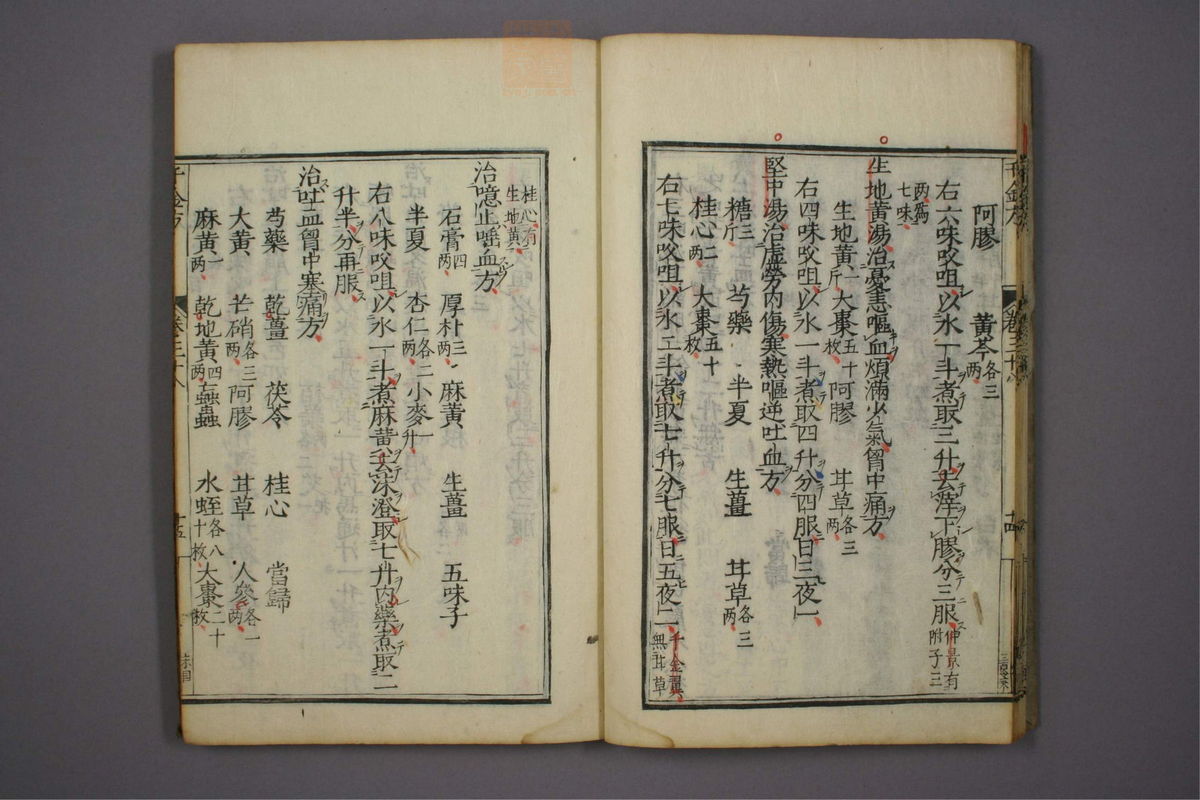 阿膠 黃芩各三两
右六味㕮咀以水一斗煮取三升去滓下膠分三服仲景有附子三
两爲七味
生地黃湯治憂恚嘔血煩滿少氣胷中痛方
生地黃一斤 大棗五十枚 阿膠 甘草各三两
右四味㕮咀以水一斗煮取四升分四服日三夜一
堅中湯治虛勞內傷寒熱嘔逆吐血方
糖三斤 芍藥 半夏 生薑 甘草各三两
桂心二两 大棗五十枚
右七味㕮咀以水二斗煮取七升分七服日五夜二千金翼無甘草
桂心有生地黃
治噫止唾血方
石膏四两 厚朴三两 麻黃 生薑 五味子
半夏 杏仁各二两 小麥一升
右八味㕮咀以水一斗煮麻黃去沫澄取七升內藥煮取二
升半分再服
治吐血胷中塞痛方
芍藥 乾薑 茯苓 桂心 當歸
大黃 芒硝各三两 阿膠 甘草 人參各一两
麻黃一两 乾地黃四两 蝱蟲 水蛭各八十枚 大棗二十枚
千金方 卷三十八 十四
千金方 卷三十八 十五